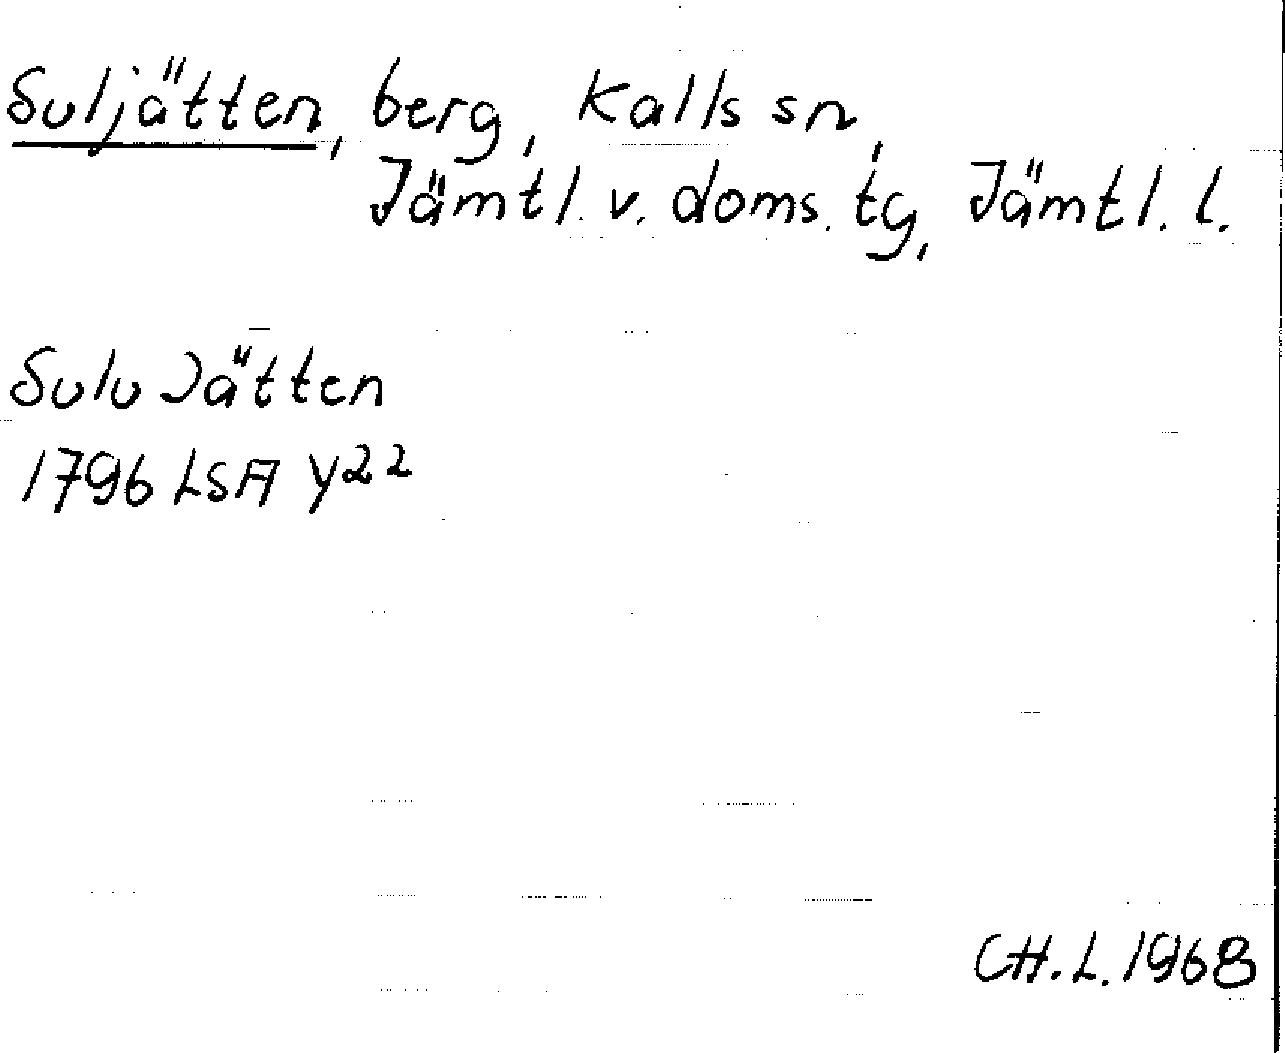 Suljätten, berg, Kalls sn,
Jämtl. v. doms. tg, Jämtl. l.
Sulu Jätten
1796 LSA Y22
CH.L. 1968